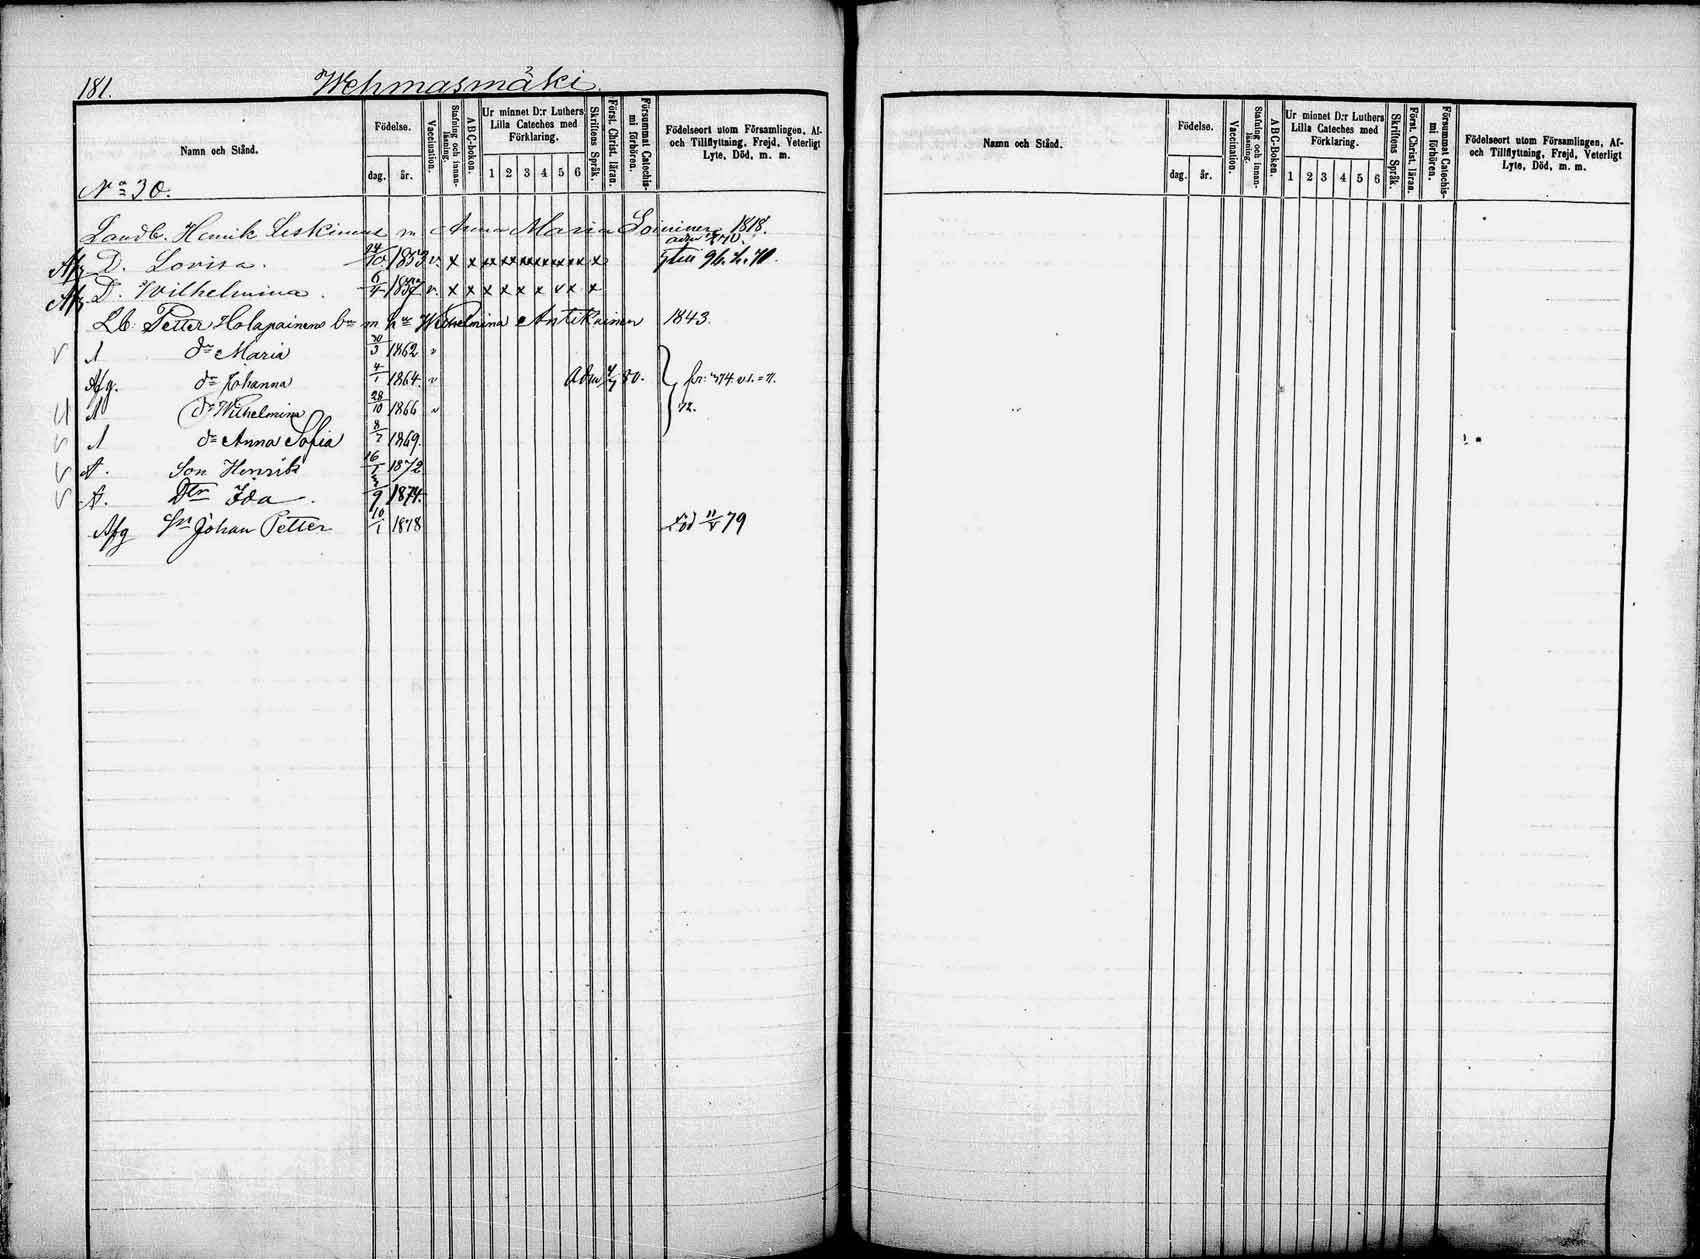 181. Wehmasmäki.
Namn och Stånd.
Födelse.
dag. år.
Vaccination.
Stafning och innan-läsning.
ABC-boken.
Ur minnet D:r Luthers Lilla Cateches med Förklaring.
1 2 3 4 5 6
Skriftens Språk.
Först. Christ. läran.
Försummat Catechis-mi förhören.
Födelseort utom Församlingen, Af-
och Tillflyttning, Frejd, Veterligt
Lyte, Död, m. m.
No 30.
Landb. Henrik Leskinens m Anna Maria 1818.
Afg D. Lovisa. 24/10 1853 v. x x xx xx xx xx xx xx x till 96. h. 70.
Afg D. Wilhelmina. 6/4 v. x x x x x x v x x
Lb. Petter Holapainens bn m hu Wilhelmina Antikainen 1843.
A dr Maria 20/3 1862 v
Afg. dr Johanna 4/1 1864. v adm 80.
A dr Wilhelmina 28/10 1866 v 72.
A dr Anna Sofia 8/7 1869.
A. Son Henrik 16/1 1872
A. Dtr Ida. 9 1874.
Afg Sn Johan Petter 10/1 1878 Död 11/5 79
Namn och Stånd.
Födelse.
dag. år.
Vaccination.
Stafning och innan-läsning.
ABC-Boken.
Ur minnet D:r Luthers Lilla Cateches med Förklaring.
1 2 3 4 5 6
Skriftens Språk.
Först. Christ. läran.
Försummat Catechis-mi förhören.
Födelseort utom Församlingen, Af-
och Tillflyttning, Frejd, Veterligt
Lyte, Död, m. m.